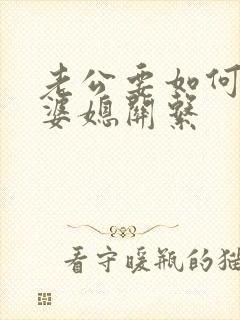 老公要如何
婆媳關繫
看守暖瓶的猫